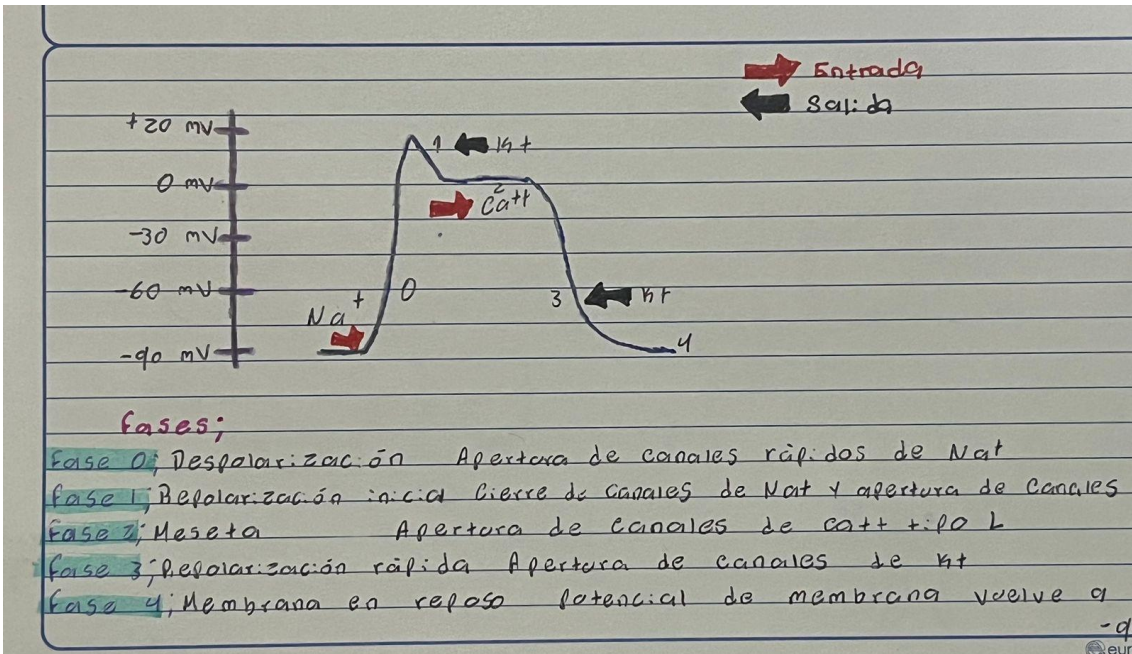 Entrada
Salida
+20 mV
1 K+
0 mV
2
Ca++
-30 mV
-60 mV
0
3 K+
Na+
-90 mV
4
Fases;
Fase 0; Despolarización Apertura de canales rápidos de Na+
Fase 1; Repolarización inicial Cierre de canales de Na+ y apertura de canales
Fase 2; Meseta Apertura de canales de Ca++ tipo L
Fase 3; Repolarización rápida Apertura de canales de K+
Fase 4; Membrana en reposo Potencial de membrana vuelve a
-9
eur